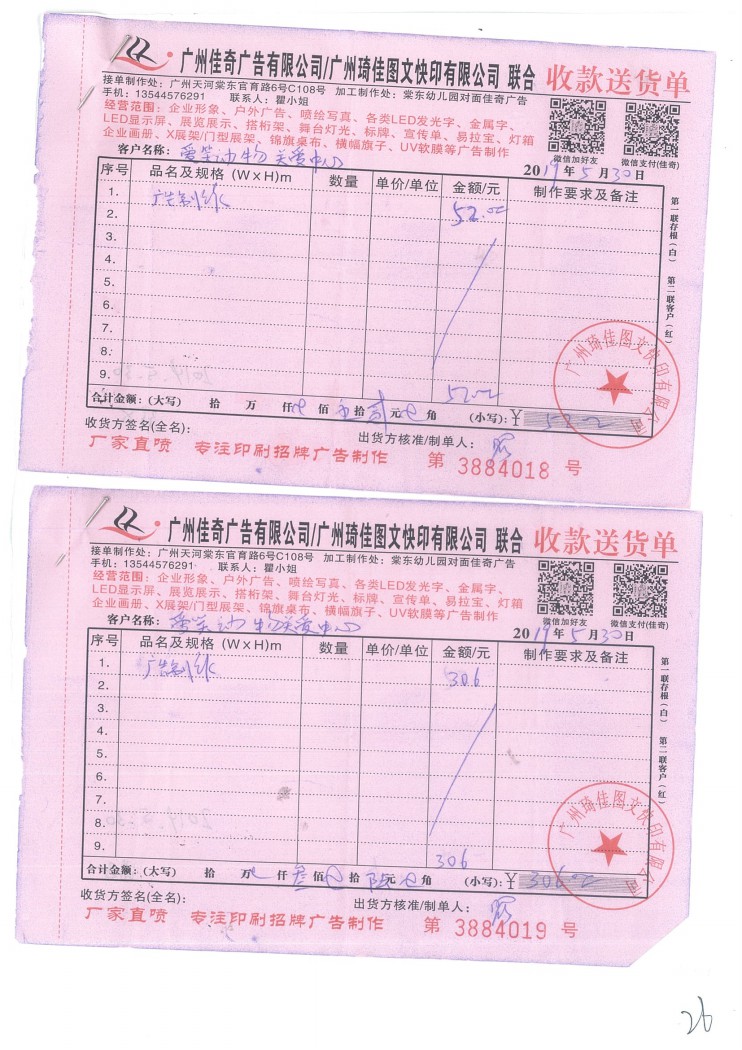 广州佳奇广告有限公司/广州琦佳图文快印有限公司 联合 收款送货单
接单制作处：广州天河棠东官育路6号C108号 加工制作处：棠东幼儿园对面佳奇广告
手机：13544576291 联系人：瞿小姐
经营范围：企业形象、户外广告、喷绘写真、各类LED发光字、金属字、
LED显示屏、展览展示、搭桁架、舞台灯光、标牌、宣传单、易拉宝、灯箱
企业画册、X展架/门型展架、锦旗桌布、横幅旗子、UV软膜等广告制作
微信加好友 微信支付(佳奇)
客户名称： 动物关爱中心 2019年5月30日
序号 品名及规格 (W×H)m 数量 单价/单位 金额/元 制作要求及备注
1. 广告制作 52.00
2.
3.
4.
5.
6.
7.
8.
9. 52.00
合计金额：(大写) 拾 万 仟 佰 五 拾 贰 元 角 (小写)：¥ 52.00
收货方签名(全名)： 出货方核准/制单人：
厂家直喷 专注印刷招牌广告制作 第 3884018 号
第一联存根(白) 第二联客户(红)
广州琦佳图文快印有限公司
广州佳奇广告有限公司/广州琦佳图文快印有限公司 联合 收款送货单
接单制作处：广州天河棠东官育路6号C108号 加工制作处：棠东幼儿园对面佳奇广告
手机：13544576291 联系人：瞿小姐
经营范围：企业形象、户外广告、喷绘写真、各类LED发光字、金属字、
LED显示屏、展览展示、搭桁架、舞台灯光、标牌、宣传单、易拉宝、灯箱
企业画册、X展架/门型展架、锦旗桌布、横幅旗子、UV软膜等广告制作
微信加好友 微信支付(佳奇)
客户名称： 动物关爱中心 2019年5月30日
序号 品名及规格 (W×H)m 数量 单价/单位 金额/元 制作要求及备注
1. 广告制作 306
2.
3.
4.
5.
6.
7.
8.
9. 306
合计金额：(大写) 拾 万 仟 叁 佰 拾 陆 元 角 (小写)：¥ 306.00
收货方签名(全名)： 出货方核准/制单人：
厂家直喷 专注印刷招牌广告制作 第 3884019 号
第一联存根(白) 第二联客户(红)
广州琦佳图文快印有限公司
26